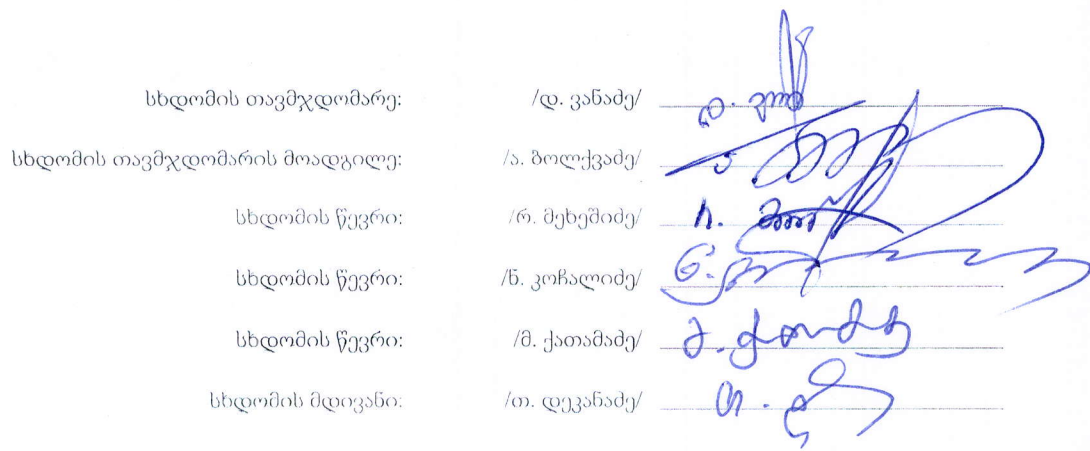 სხდომის თავმჯდომარე: /დ. ვანაძე/
სხდომის თავმჯდომარის მოადგილე: /ა. ბოლქვაძე/
სხდომის წევრი: /რ. მეხეშიძე/
სხდომის წევრი: /ნ. კოჩალიძე/
სხდომის წევრი: /მ. ქათამაძე/
სხდომის მდივანი: /თ. დეკანაძე/